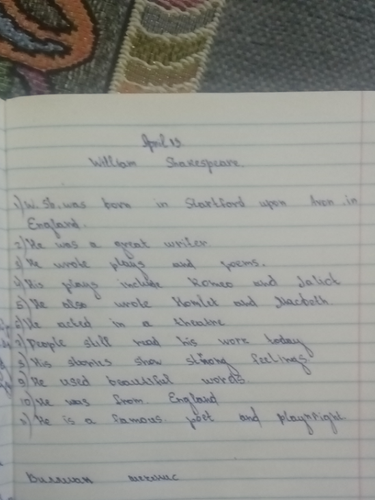 April 19
William Shakespeare
1) W. Sh. was born in Startford upon Avon in
England.
2) He was a great writer
3) He wrote plays and poems.
4) His plays include Romeo and Juliet
5) He also wrote Hamlet and Macbeth
6) He acted in a theatre
7) People still read his work today
8) His stories show strong feelings
9) He used beautiful words.
10) He was from England
He is a famous poet and playwright